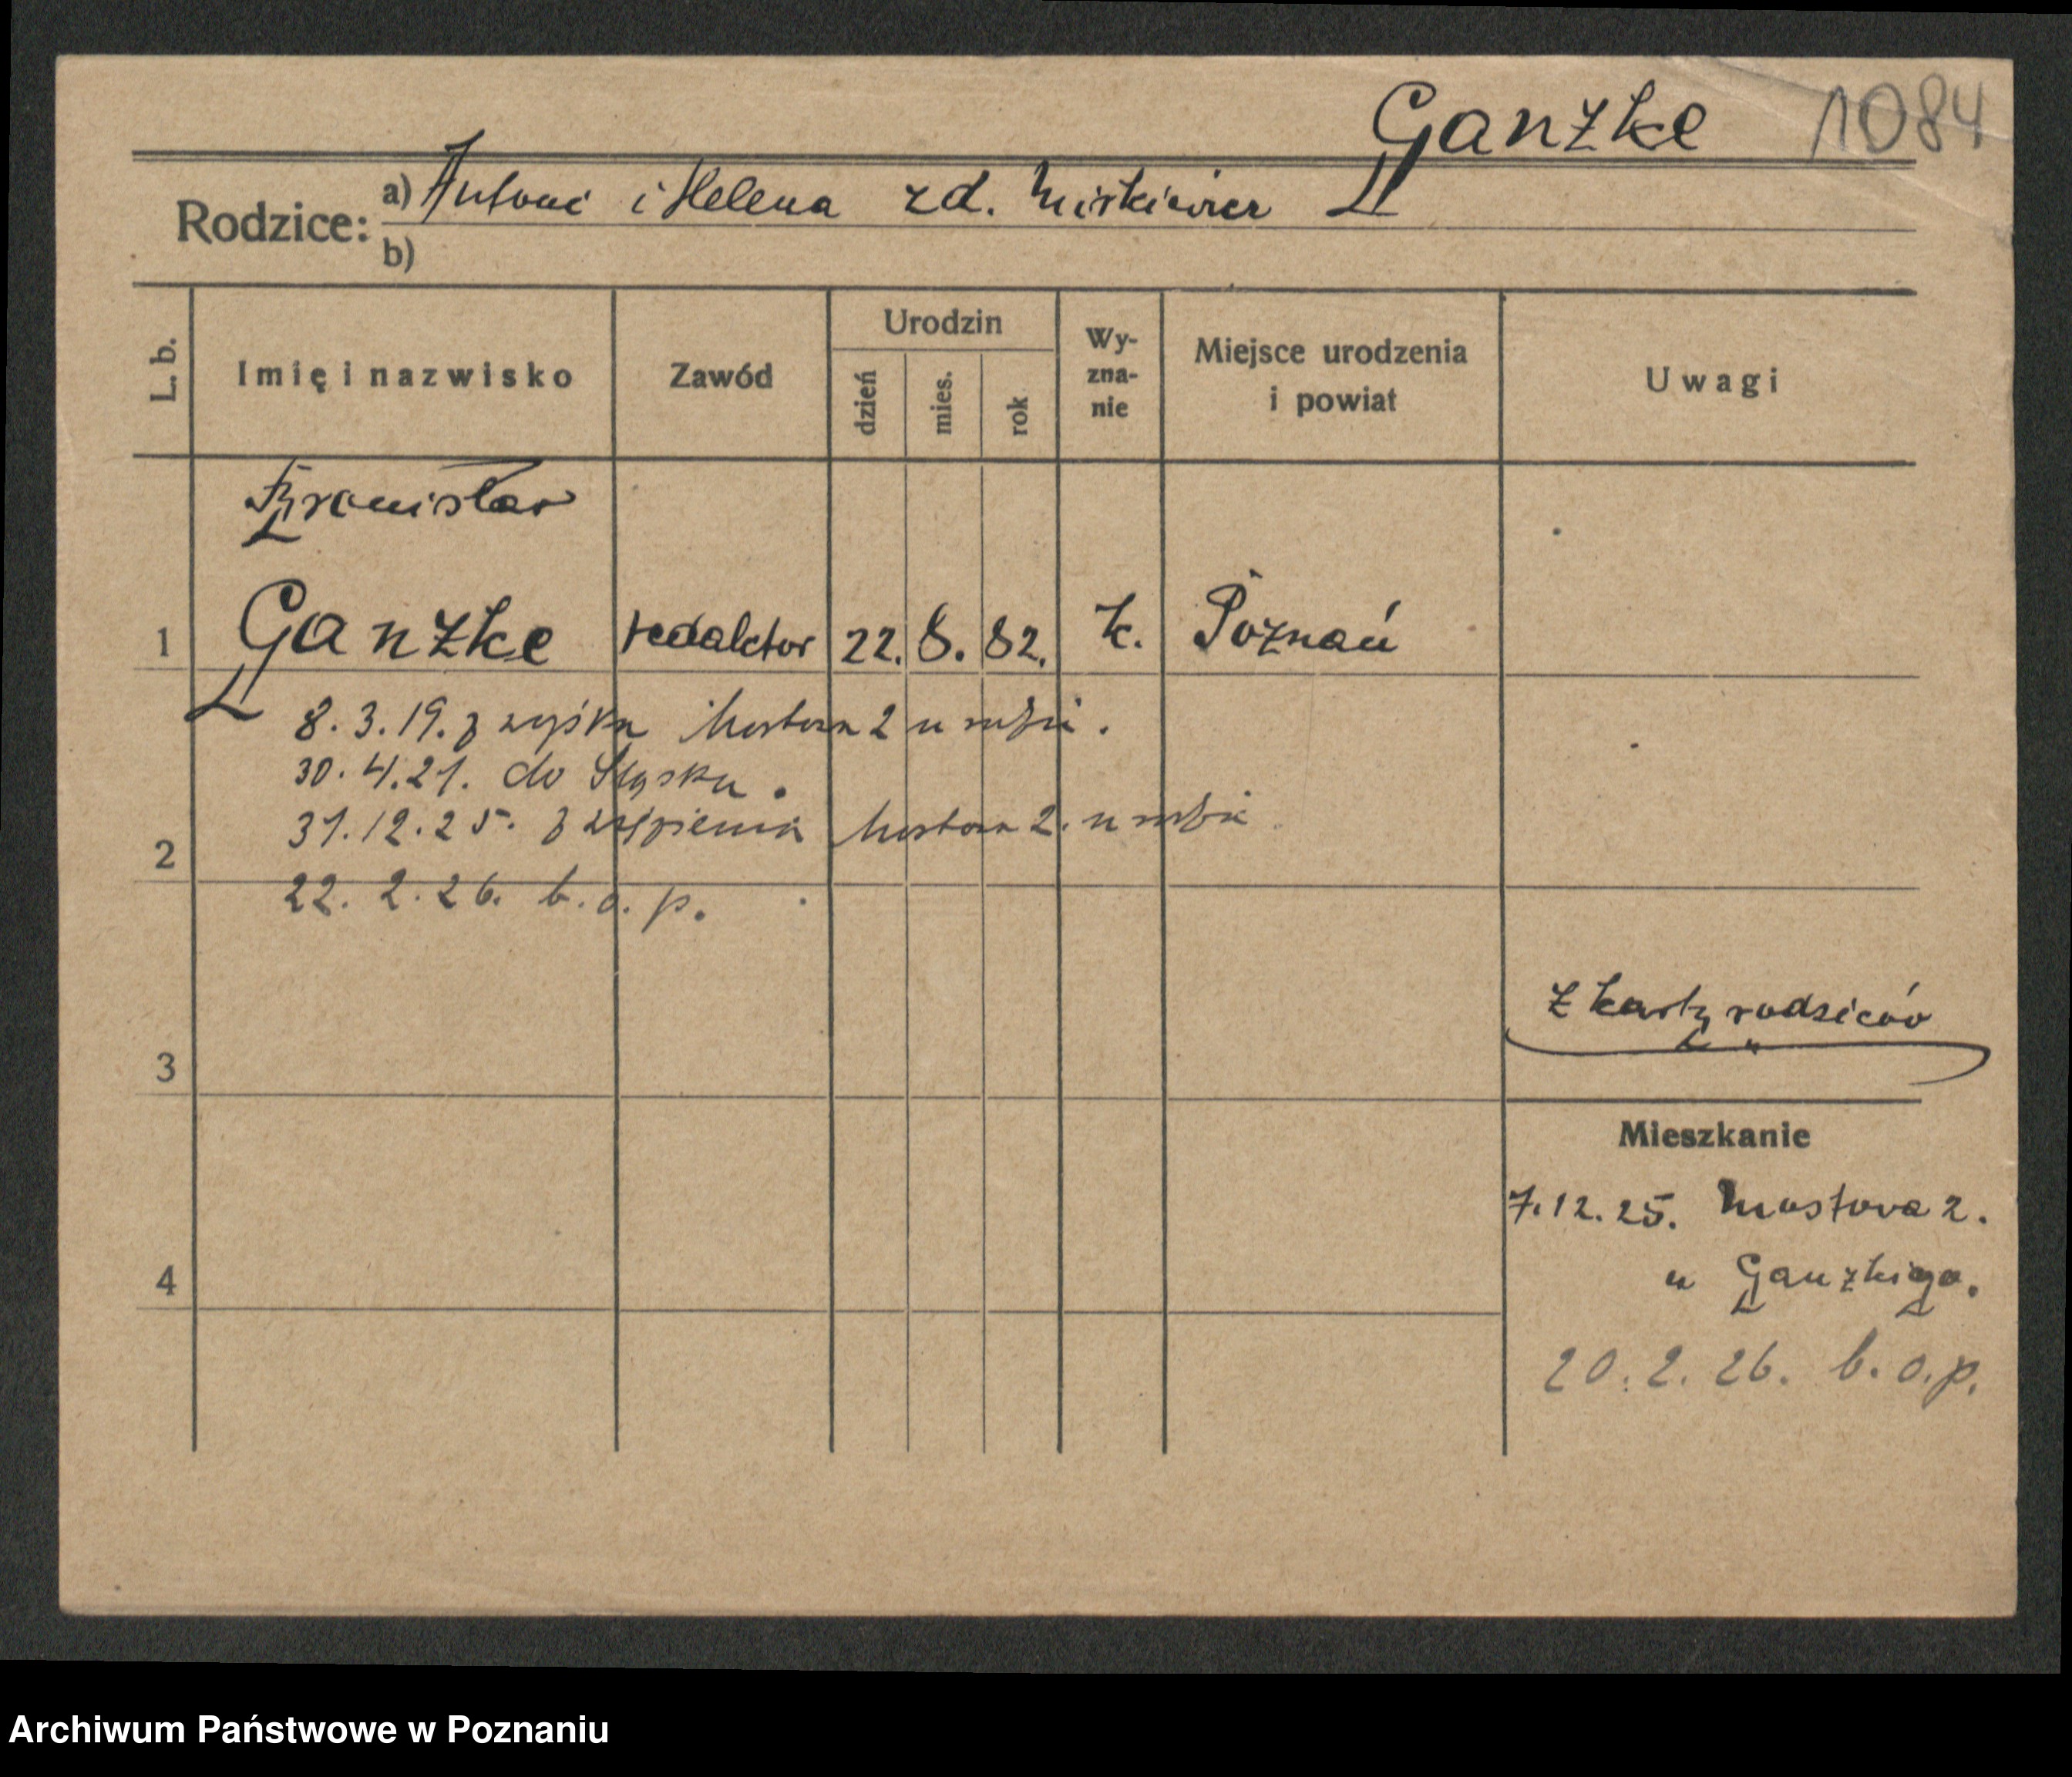 Ganzke 1084
Rodzice: a) Antoni i Helena zd. Miśkiewicz
b)
L. b. Imię i nazwisko Zawód Urodzin dzień mies. rok Wy-zna-nie Miejsce urodzenia i powiat Uwagi
Bronisław
1 Ganzke redaktor 22. 8. 82. k. Poznań
8. 3. 19. z wojska Mostowa 2 u rodzi.
30. 4. 21. do Śląska.
31. 12. 25. z Mostowa 2. u rodzi
2
22. 2. 26. b. o. p.
z karty rodziców
3
Mieszkanie
7. 12. 25. Mostowa 2.
4 u Ganzkigo.
20. 2. 26. b. o. p.
Archiwum Państwowe w Poznaniu